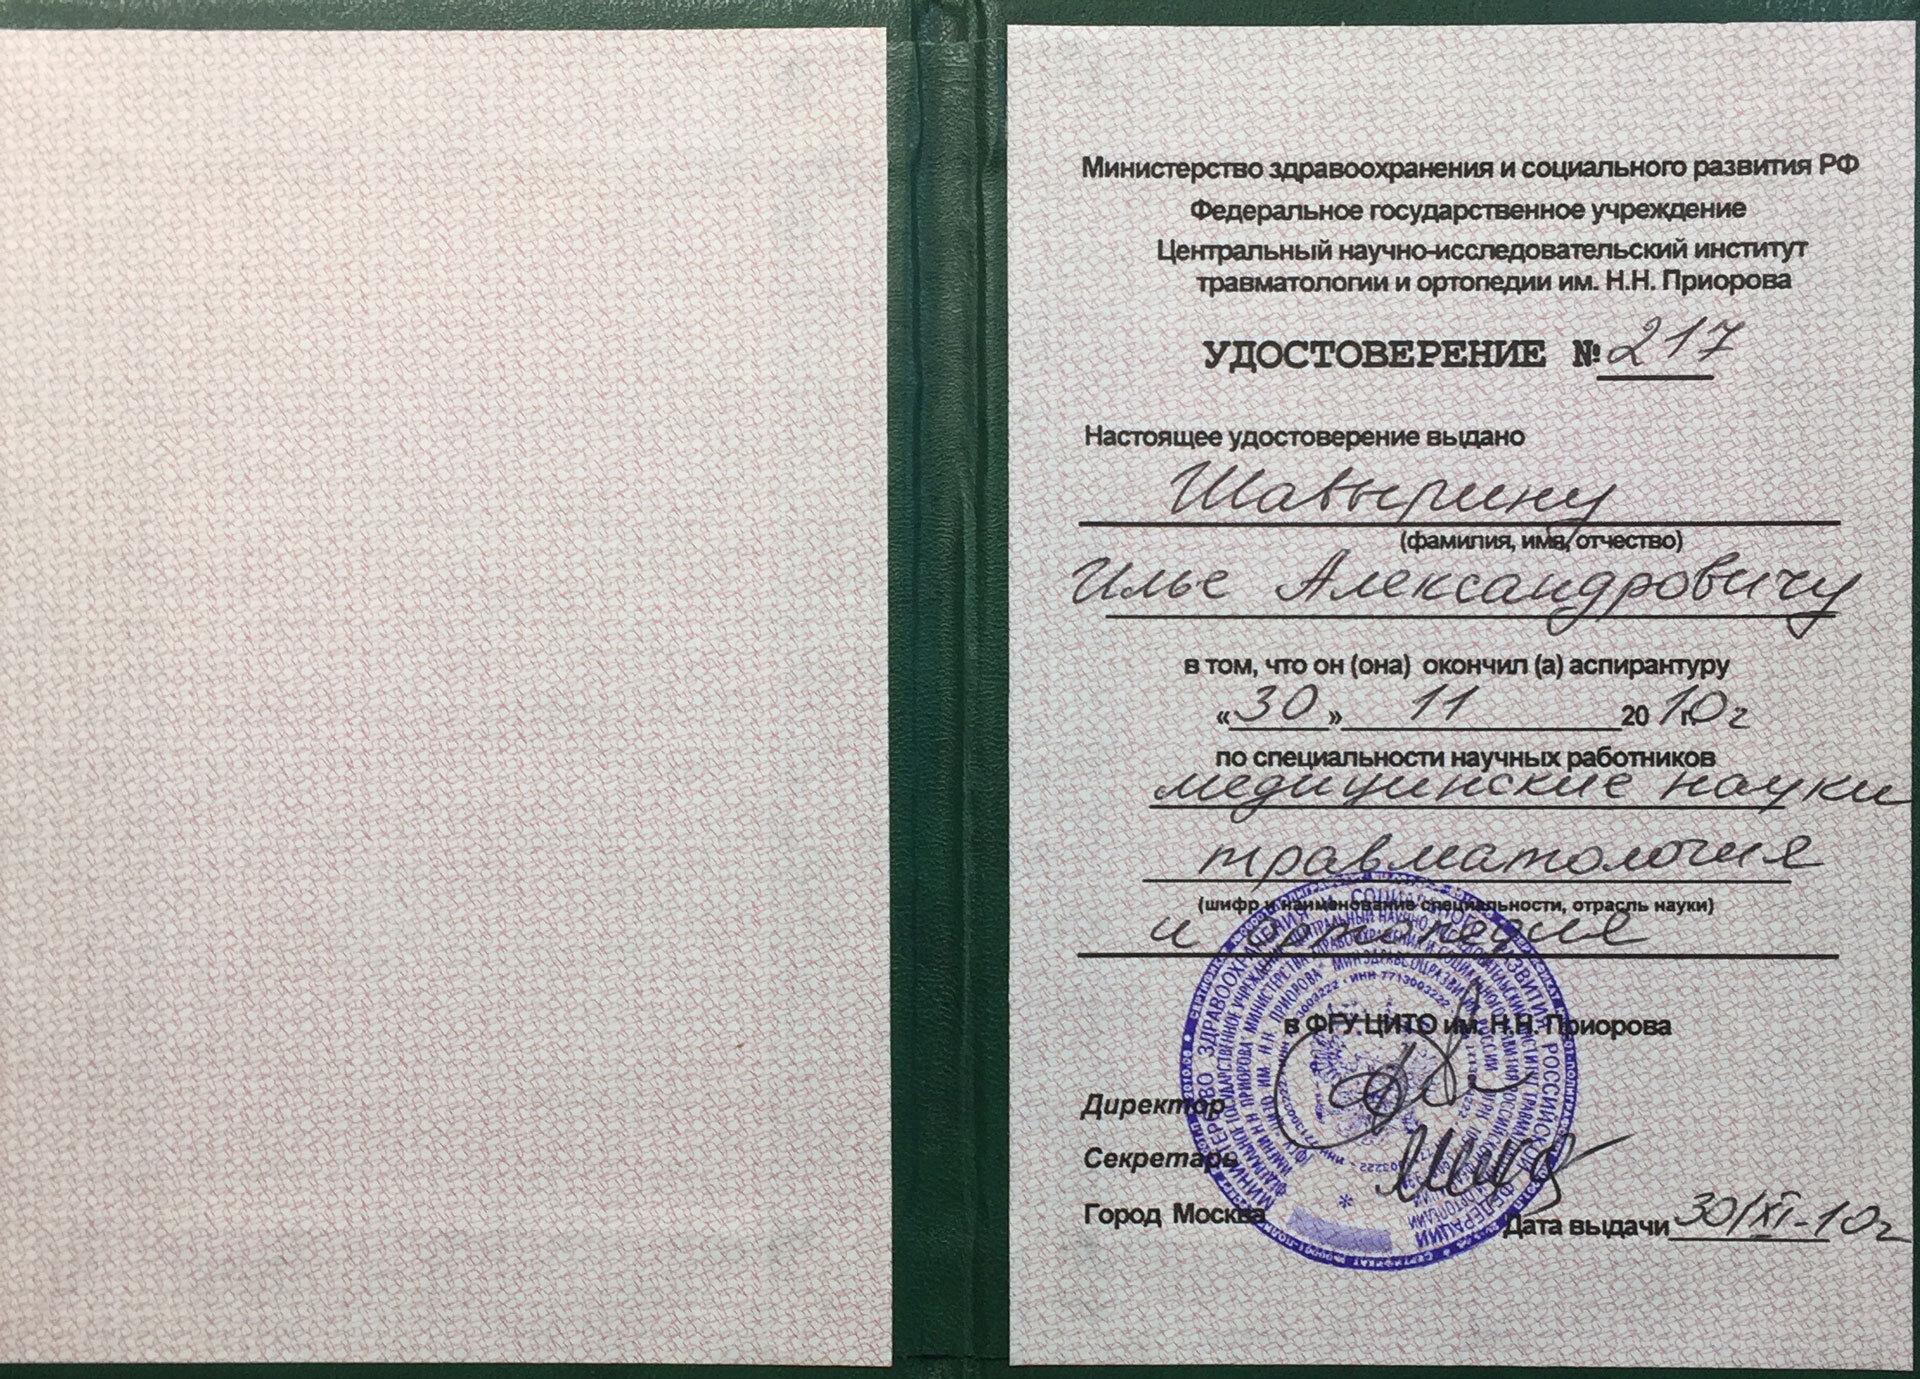 Министерство здравоохранения и социального развития РФ
Федеральное государственное учреждение
Центральный научно-исследовательский институт
травматологии и ортопедии им. Н.Н. Приорова
УДОСТОВЕРЕНИЕ № 217
Настоящее удостоверение выдано
Шавырину
(фамилия, имя, отчество)
Илье Александровичу
в том, что он (она) окончил (а) аспирантуру
«30» 11 2010 г
по специальности научных работников
медицинские науки
травматология
(шифр и наименование специальности, отрасль науки)
и ортопедия
в ФГУ ЦИТО им. Н.Н. Приорова
Директор
Секретарь
Город Москва
Дата выдачи 30/XI-10г
МИНИСТЕРСТВО ЗДРАВООХРАНЕНИЯ И СОЦИАЛЬНОГО РАЗВИТИЯ РОССИЙСКОЙ ФЕДЕРАЦИИ
ИНН 7713003222